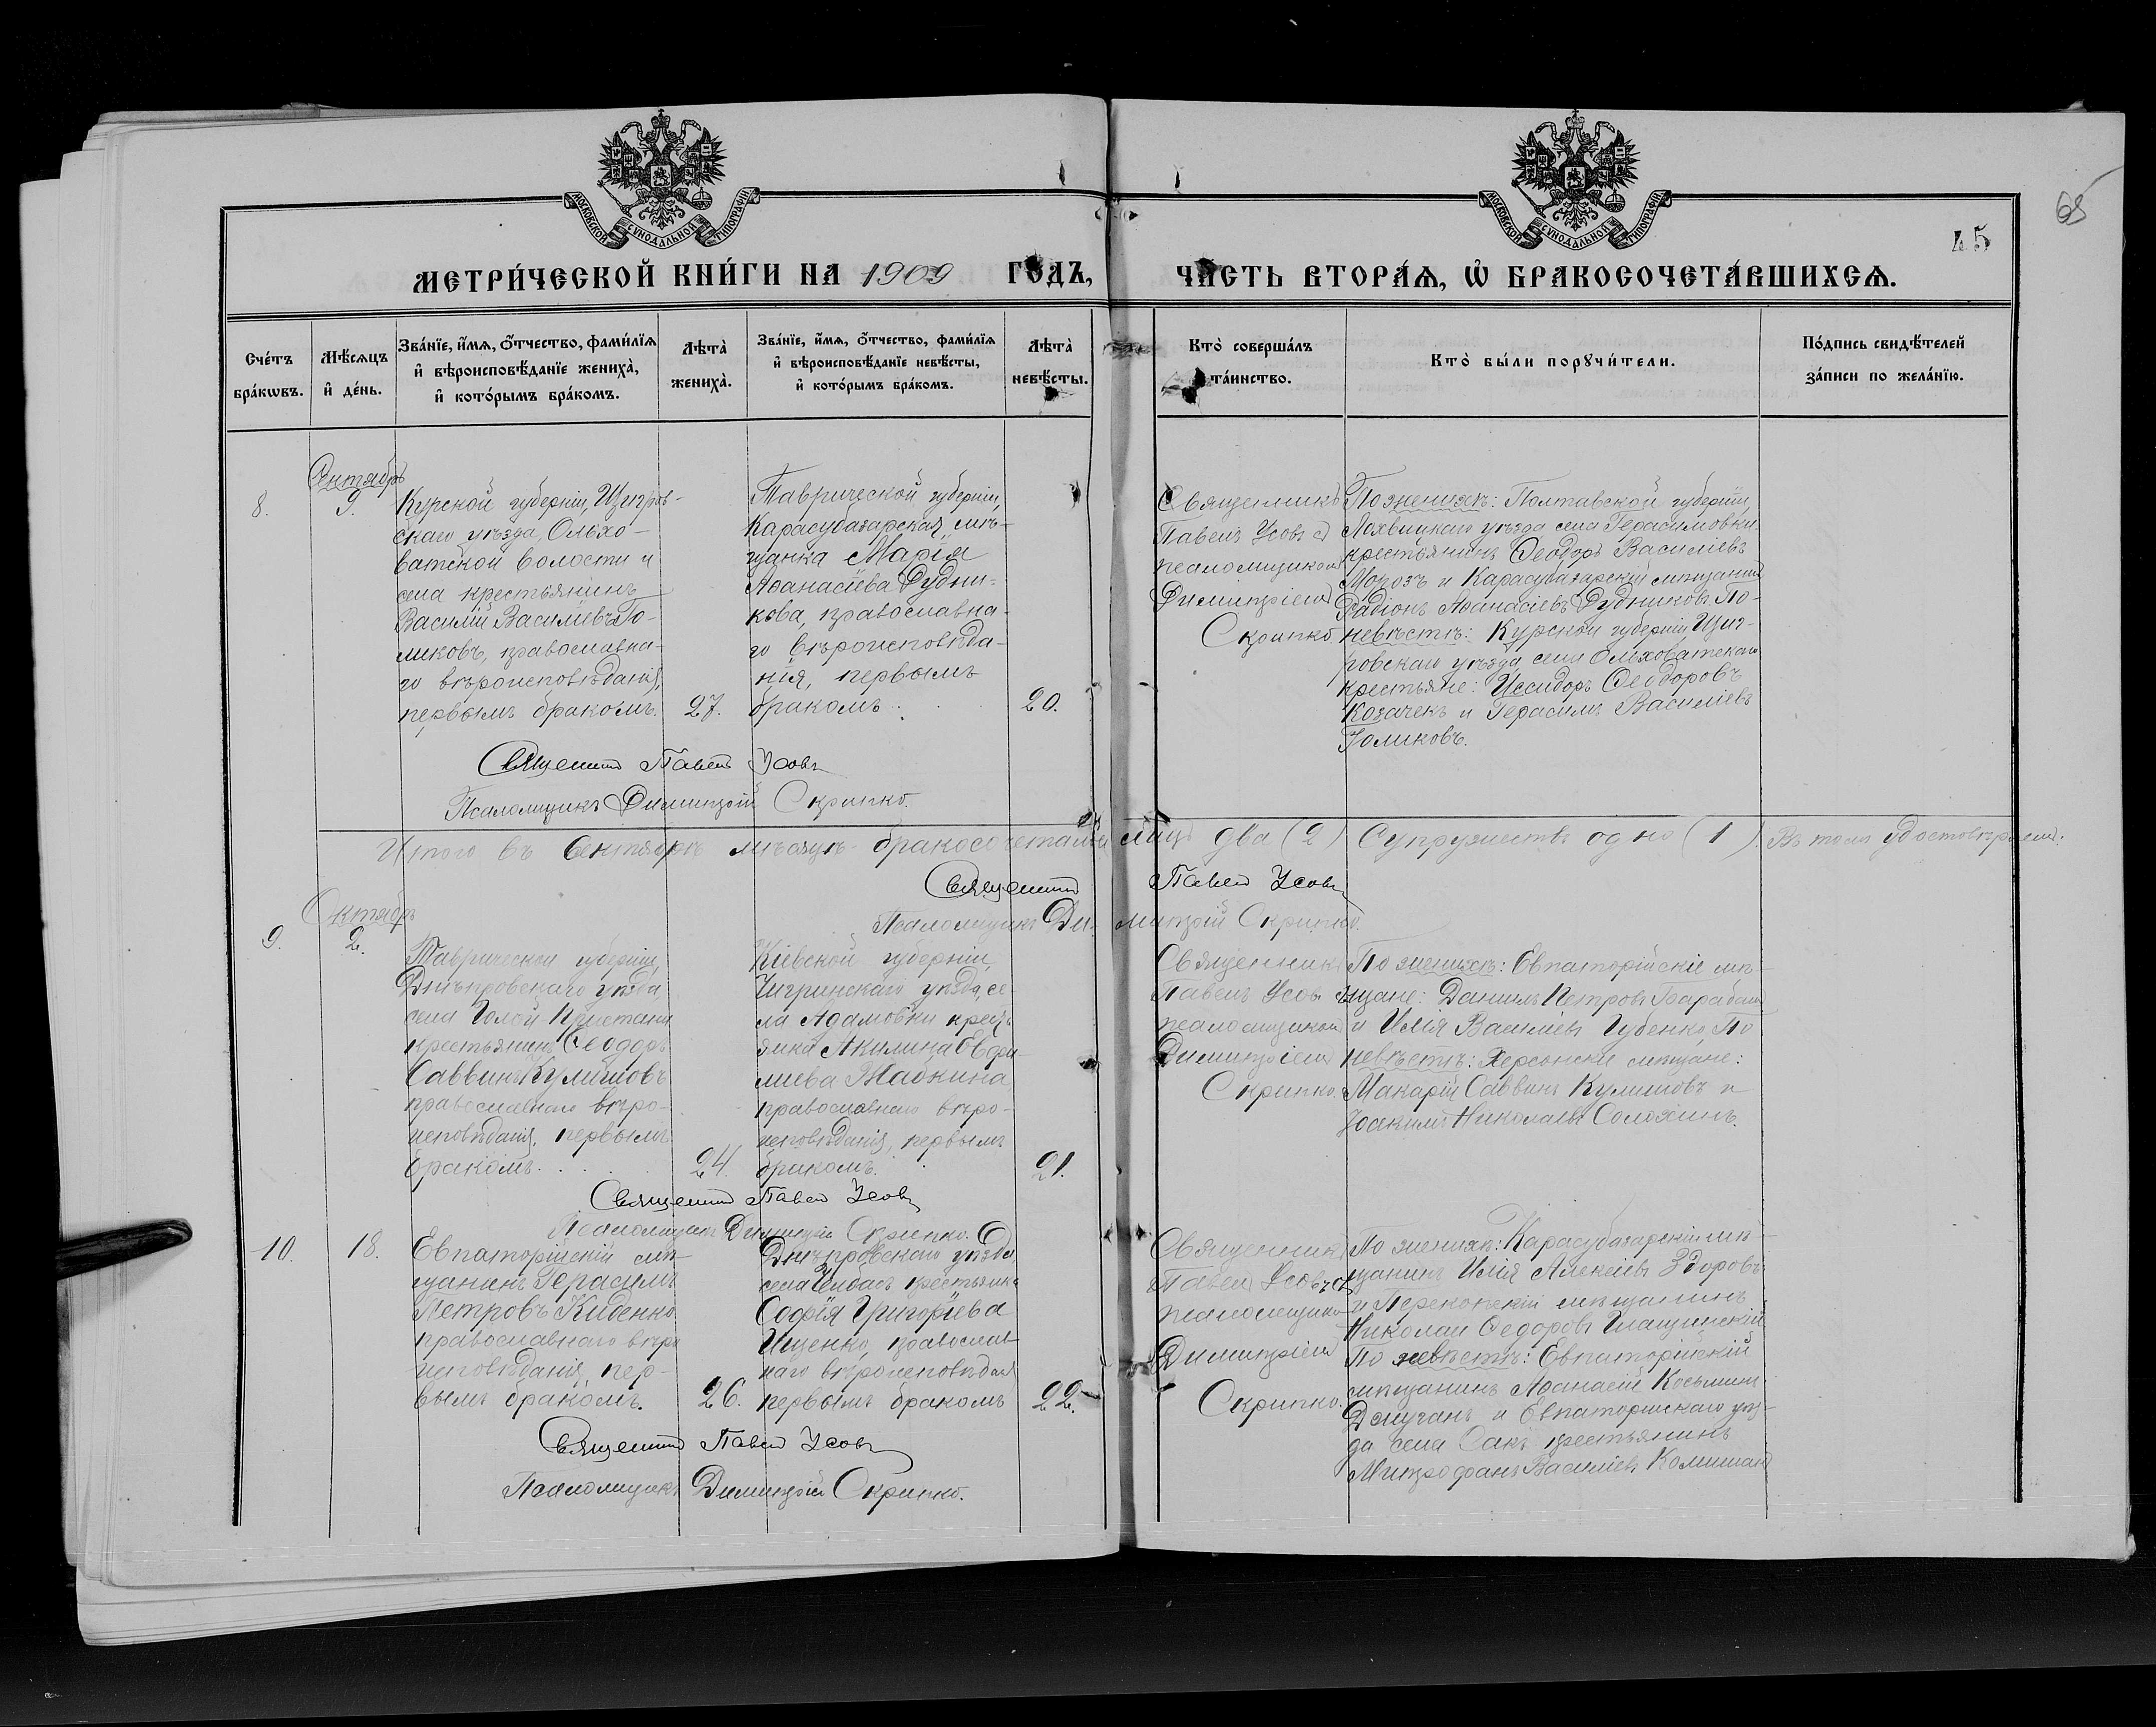 МОСКОВСКОЙ СУНОДАЛЬНОЙ ТИПОГРАФІИ
МОСКОВСКОЙ СУНОДАЛЬНОЙ ТИПОГРАФІИ
65
45
МЕТРИ́ЧЕСКОЙ КНИ́ГИ НА 1909 ГОДЪ,
ЧАСТЬ ВТОРА́Я, Ѡ҆ БРАКОСОЧЕТА́ВШИХСЯ.
Сче́тъ бра́кωвъ.
Мѣ́сяцъ и҆ де́нь.
Зва́нїе, и҆́мя, ѻ҆́тчество, фами́лїя и҆ вѣроисповѣ́данїе жениха̀, и҆ кото́рымъ бра́комъ.
Лѣта̀ жениха̀.
Зва́нїе, и҆́мя, ѻ҆́тчество, фами́лїя и҆ вѣроисповѣ́данїе невѣ́сты, и҆ кото́рымъ бра́комъ.
Лѣта̀ невѣ́сты.
Кто̀ соверша́лъ та́инство.
Кто̀ бы́ли порꙋчи́тели.
По́дпись свидѣ́телей за́писи по жела́нїю.
Сентябрь
8.
9.
Курской губерніи, Щигров-
скаго уѣзда, Ольхо-
ватской волости и
села крестьянинъ
Василій Васильевъ Го-
ликовъ, православна-
го вѣроисповѣданія,
первымъ бракомъ.
27.
Таврической губерніи,
Карасубазарская мѣ-
щанка Марія
Аѳанасіева Рудни-
кова, православна-
го вѣроисповѣда-
нія, первымъ
бракомъ
20.
Священникъ
Павелъ Усовъ съ
псаломщикомъ
Димитріемъ
Скрипко
По женихѣ: Полтавской губерніи,
уѣзда села Герасимовки
крестьянинъ Ѳеодоръ Василіевъ
Морозъ и Карасубазарскій мѣщанинъ
Радіонъ Аѳанасіевъ Рудниковъ. По
невѣстѣ: Курской губерніи, Щиг-
ровскаго уѣзда, села Ольховатскаго
крестьяне: Исидоръ Ѳеодоровъ
Козачекъ и Герасимъ Василіевъ
Голиковъ.
Священникъ Павелъ Усовъ
Псаломщикъ Димитрій Скрипко.
Итого въ Сентябрѣ мѣсяцѣ бракосочетались лицъ два (2) Супружествъ одно (1). Въ томъ удостовѣряемъ:
Священникъ Павелъ Усовъ
Псаломщикъ Димитрій Скрипко.
Октябрь
9.
2.
Таврической губерніи,
Днѣпровскаго уѣзда,
села Голой Пристани
крестьянинъ Ѳеодоръ
Саввинъ Кулишовъ
православнаго вѣро-
исповѣданія, первымъ
бракомъ.
24.
Кіевской губерніи,
Чигринскаго уѣзда, се-
ла Адамовки кресть-
янка Акилина Евфи-
міева Жабкина
православнаго вѣро-
исповѣданія, первымъ
бракомъ.
21.
Священникъ
Павелъ Усовъ съ
псаломщикомъ
Димитріемъ
Скрипко.
По женихѣ: Евпаторійскіе мѣ-
щане: Даніилъ Петровъ Барабашъ
и Илія Василіевъ Губенко, По
невѣстѣ: Херсонскіе мѣщане:
Макарій Саввинъ Кулишовъ и
Іоакимъ Николаевъ Солохинъ.
Священникъ Павелъ Усовъ
Псаломщикъ Димитрій Скрипко.
10.
18.
Евпаторійскій мѣ-
щанинъ Герасимъ
Петровъ Киденко
православнаго вѣро
исповѣданія, пер-
вымъ бракомъ.
26.
Днѣпровскаго уѣзда,
села Чалбасъ крестьянка
Софія Григоріева
Ищенко, православ-
наго вѣроисповѣданія
первымъ бракомъ
22.
Священникъ
Павелъ Усовъ съ
псаломщикомъ
Димитріемъ
Скрипко.
По женихѣ: Карасубазарскій мѣ-
щанинъ Илія Алексіевъ Здоровъ
и Перекопскій мѣщанинъ
Николай Ѳедоровъ
По невѣстѣ: Евпаторійскій
мѣщанинъ Аѳанасій Косьминъ
и Евпаторійскаго уѣз-
да села Сакъ крестьянинъ
Митрофанъ Василіевъ
Священникъ Павелъ Усовъ
Псаломщикъ Димитрій Скрипко.